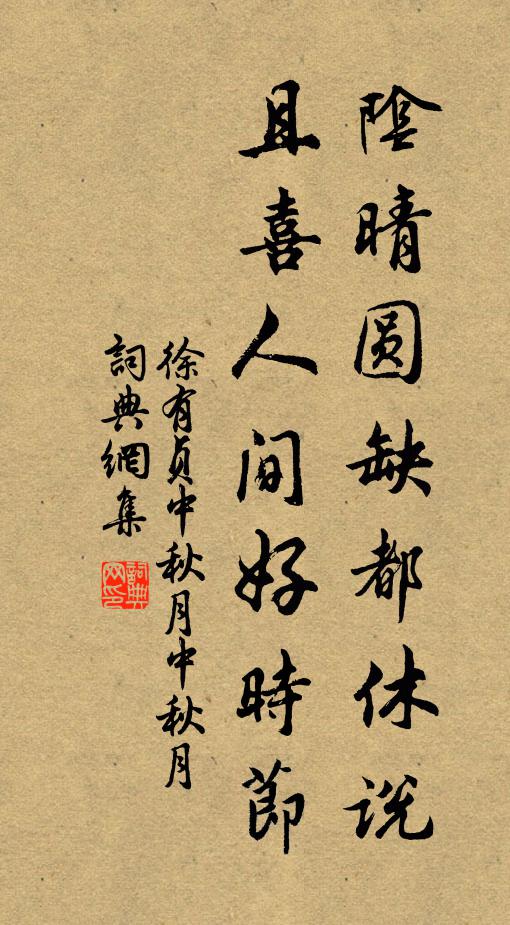 陰晴圓缺都休説
且喜人間好時節
徐有貞中秋月中秋月
詞典網集
詞典網印